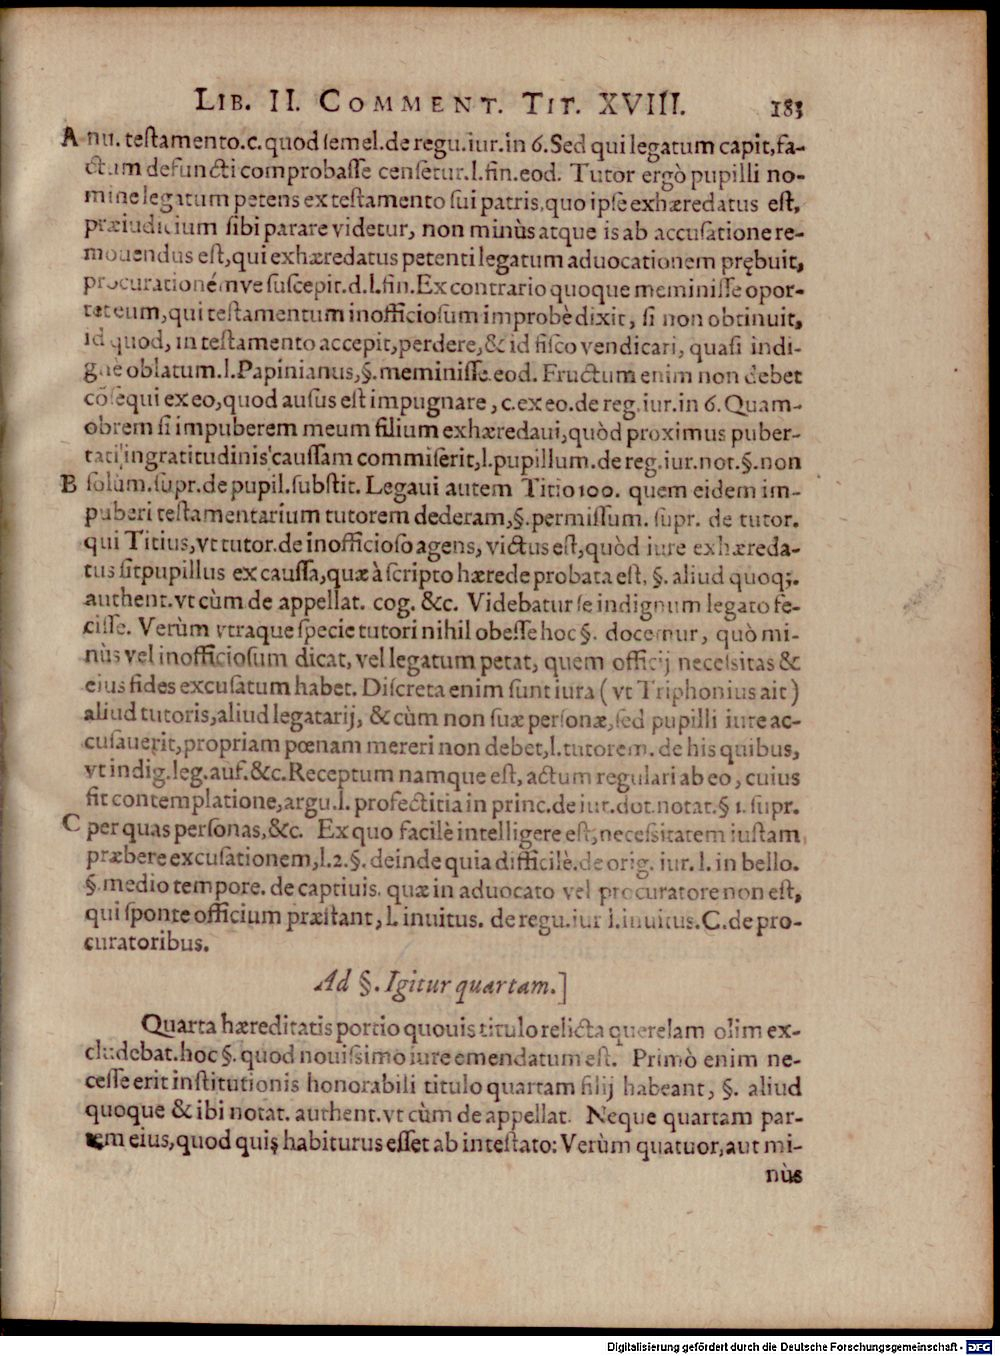 LIB. II. COMMENT. TIT. XVIII. 183
A nu. testamento.c. quod semel. de regu. iur. in 6. Sed qui legatum capit, fa-
ctum defuncti comprobasse censetur. l. fin. eod. Tutor ergò pupilli no-
mine legatum petens ex testamento sui patris, quo ipse exhæredatus est,
præiudicium sibi parare videtur, non minùs atque is ab accusatione re-
mouendus est, qui exhæredatus petenti legatum aduocationem prębuit,
procurationémve suscepit. d. l. fin. Ex contrario quoque meminisse opor-
tet eum, qui testamentum inofficiosum improbè dixit, si non obtinuit,
id quod, in testamento accepit, perdere, & id fisco vendicari, quasi indi-
gnè oblatum. l. Papinianus, §. meminisse. eod. Fructum enim non debet
cõsequi ex eo, quod ausus est impugnare, c. ex eo. de reg. iur. in 6. Quam-
obrem si impuberem meum filium exhæredaui, quòd proximus puber-
tati ingratitudinis caussam commiserit, l. pupillum. de reg. iur. not. §. non
B solùm. supr. de pupil. substit. Legaui autem Titio 100. quem eidem im-
puberi testamentarium tutorem dederam, §. permissum. supr. de tutor.
qui Titius, vt tutor. de inofficioso agens, victus est, quòd iure exhæreda-
tus sit pupillus ex caussa, quæ à scripto hærede probata est. §. aliud quoq;.
authent. vt cùm de appellat. cog. &c. Videbatur se indignum legato fe-
cisse. Verùm vtraque specie tutori nihil obesse hoc §. docemur, quò mi-
nùs vel inofficiosum dicat, vel legatum petat, quem officij necessitas &
eius fides excusatum habet. Discreta enim sunt iura (vt Triphonius ait)
aliud tutoris, aliud legatarij, & cùm non suæ personæ, sed pupilli iure ac-
cusauerit, propriam pœnam mereri non debet, l. tutorem. de his quibus,
vt indig. leg. auf. &c. Receptum namque est, actum regulari ab eo, cuius
fit contemplatione, argu. l. profectitia in princ. de iur. dot. notat. § 1. supr.
C per quas personas, &c. Ex quo facilè intelligere est, necessitatem iustam
præbere excusationem, l. 2. §. deinde quia difficilè. de orig. iur. l. in bello.
§. medio tempore. de captiuis. quæ in aduocato vel procuratore non est,
qui sponte officium præstant, l. inuitus. de regu. iur l. inuitus. C. de pro-
curatoribus.
Ad §. Igitur quartam.]
Quarta hæreditatis portio quouis titulo relicta querelam olim ex-
cludebat. hoc §. quod nouissimo iure emendatum est. Primò enim ne-
cesse erit institutionis honorabili titulo quartam filij habeant, §. aliud
quoque & ibi notat. authent. vt cùm de appellat. Neque quartam par-
tem eius, quod quis habiturus esset ab intestato: Verùm quatuor, aut mi-
nùs
Digitalisierung gefördert durch die Deutsche Forschungsgemeinschaft - DFG